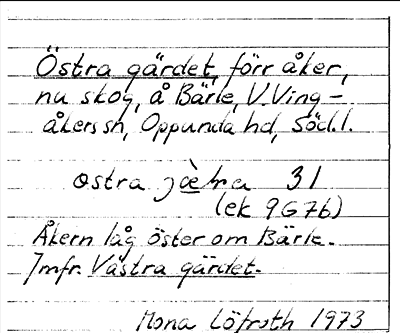 Östra gärdet, förr åker,
nu skog, å Bärle, V. Ving-
åkers sn, Oppunda hd, Södl.
östra jæ̀ḷna 31
(ek 9G7b)
Åkern låg öster om Bärle.
Jmfr. Västra gärdet.
Mona Löfroth 1973